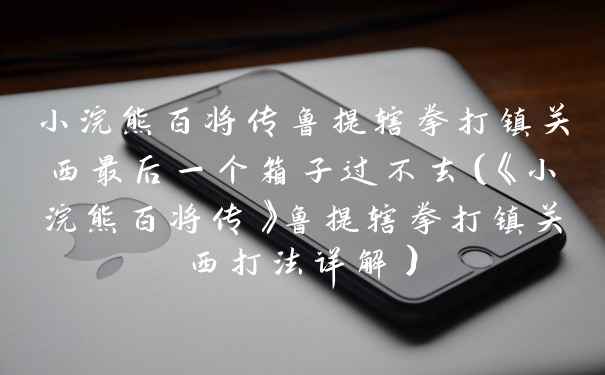 小浣熊百将传鲁提辖拳打镇关
西最后一个箱子过不去(《小
浣熊百将传》鲁提辖拳打镇关
西打法详解)